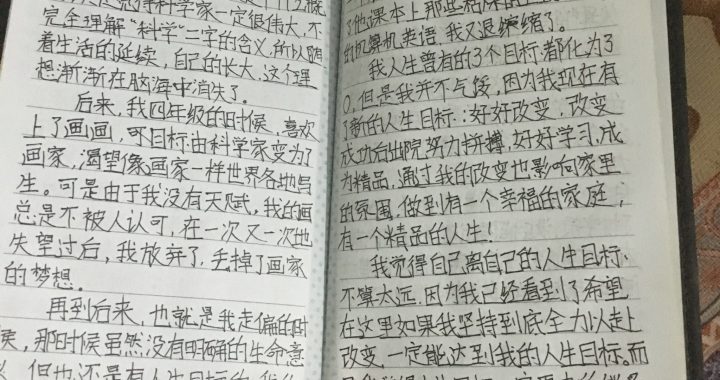 觉得科学家一定很伟大,不
完全理解“科学”二字的含义,所以随
着生活的延续,自己的长大,这个理
想渐渐在脑海中消失了。
后来,我四年级的时候,喜欢
上了画画,可目标由科学家变为了
画家,渴望像画家一样世界各地写
生。可是由于我没有天赋,我的画
总是不被人认可,在一次又一次地
失望过后,我放弃了,丢掉了画家
的梦想。
再到后来,也就是我走偏的时
候,那时候虽然没有明确的生命意
但也还是有人生目标的
了他课本上那些
的计算机英语,我又退缩了。
我人生曾有的3个目标都化为了
0,但是我并不气馁,因为我现在有
了新的人生目标:好好改变,改变
成功后出院努力拼搏,好好学习,成
为精品,通过我的改变也影响家里
的氛围,做到有一个幸福的家庭,
有一个精品的人生!
我觉得自己离自己的人生目标,
不算太远,因为我已经看到了希望
在这里如果我坚持到底全力以赴
改变,一定能达到我的人生目标。而